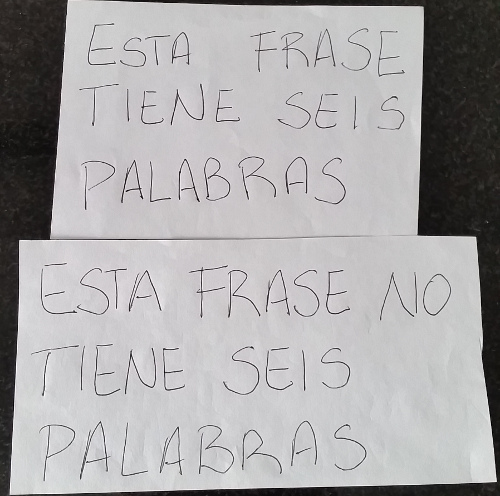 ESTA FRASE
TIENE SEIS
PALABRAS
ESTA FRASE NO
TIENE SEIS
PALABRAS